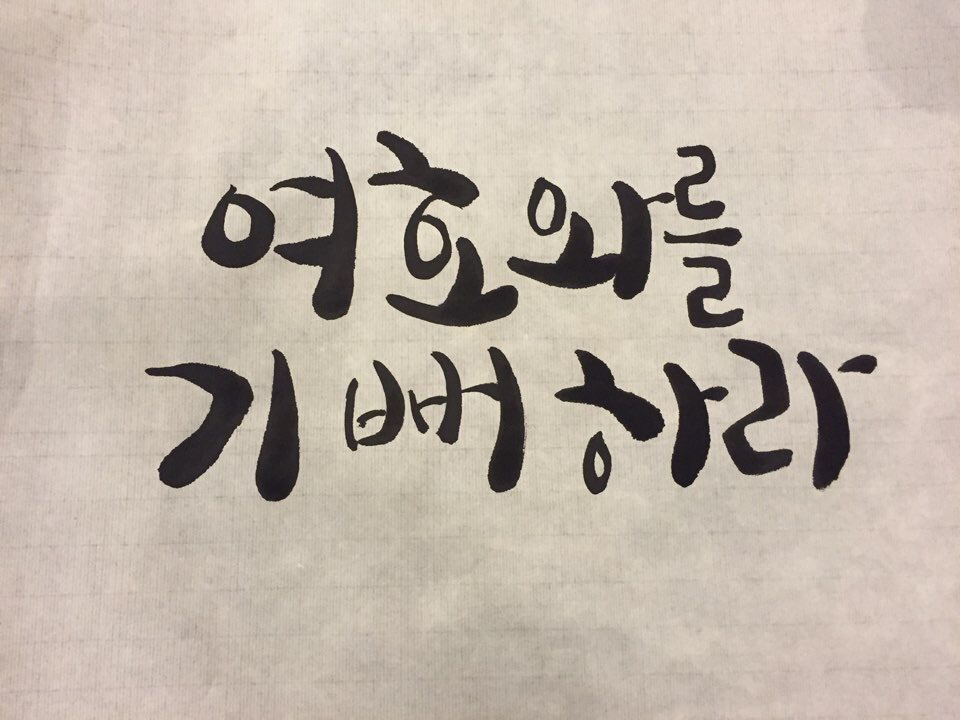 여호와를
기뻐하라